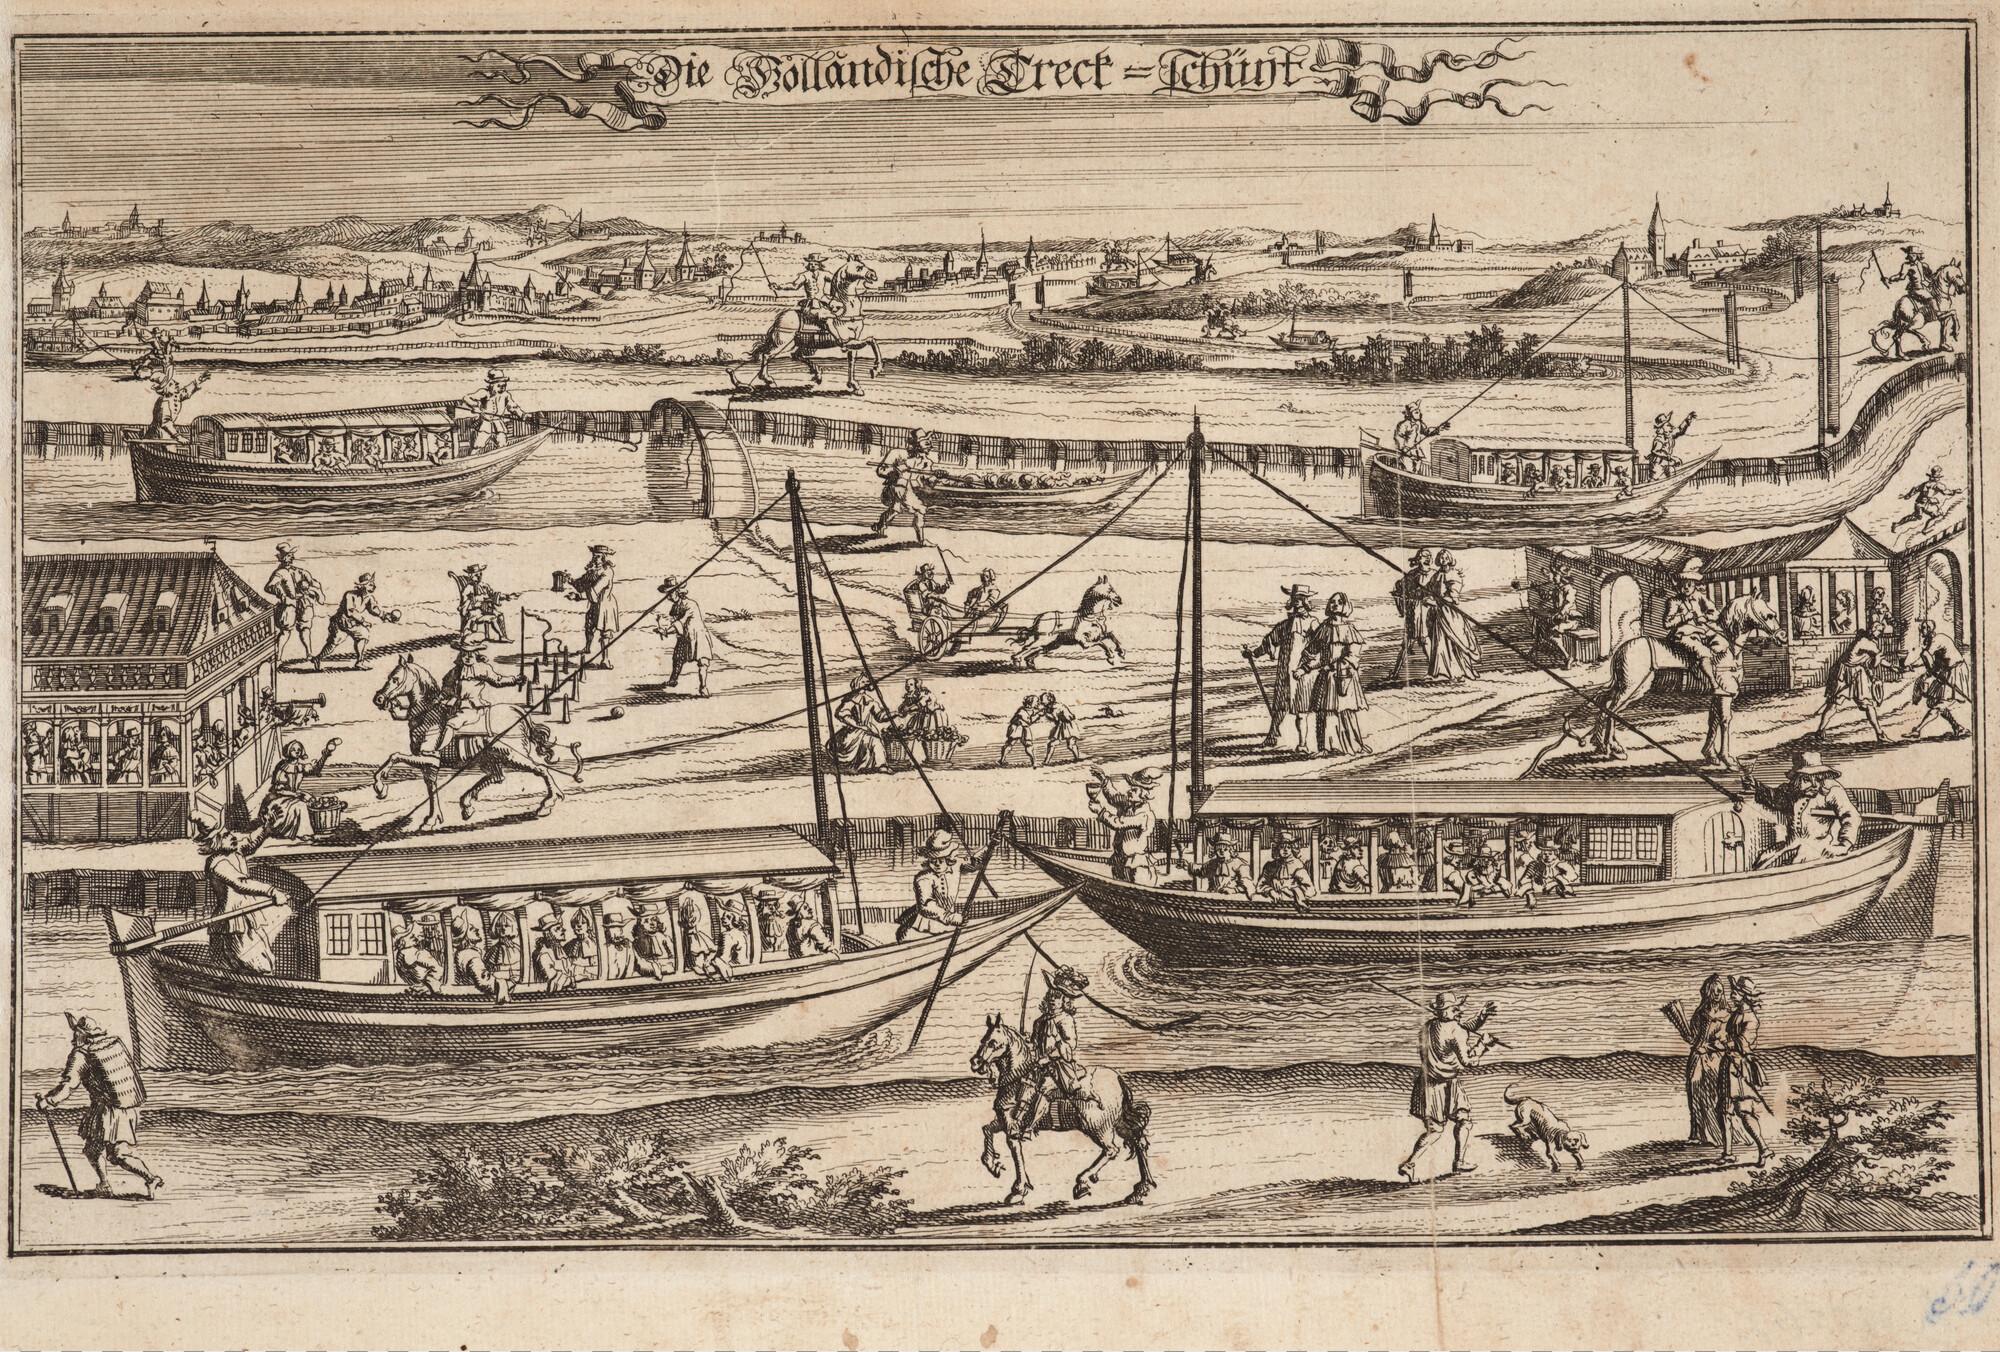 Die Hollandische Treck-schüÿt